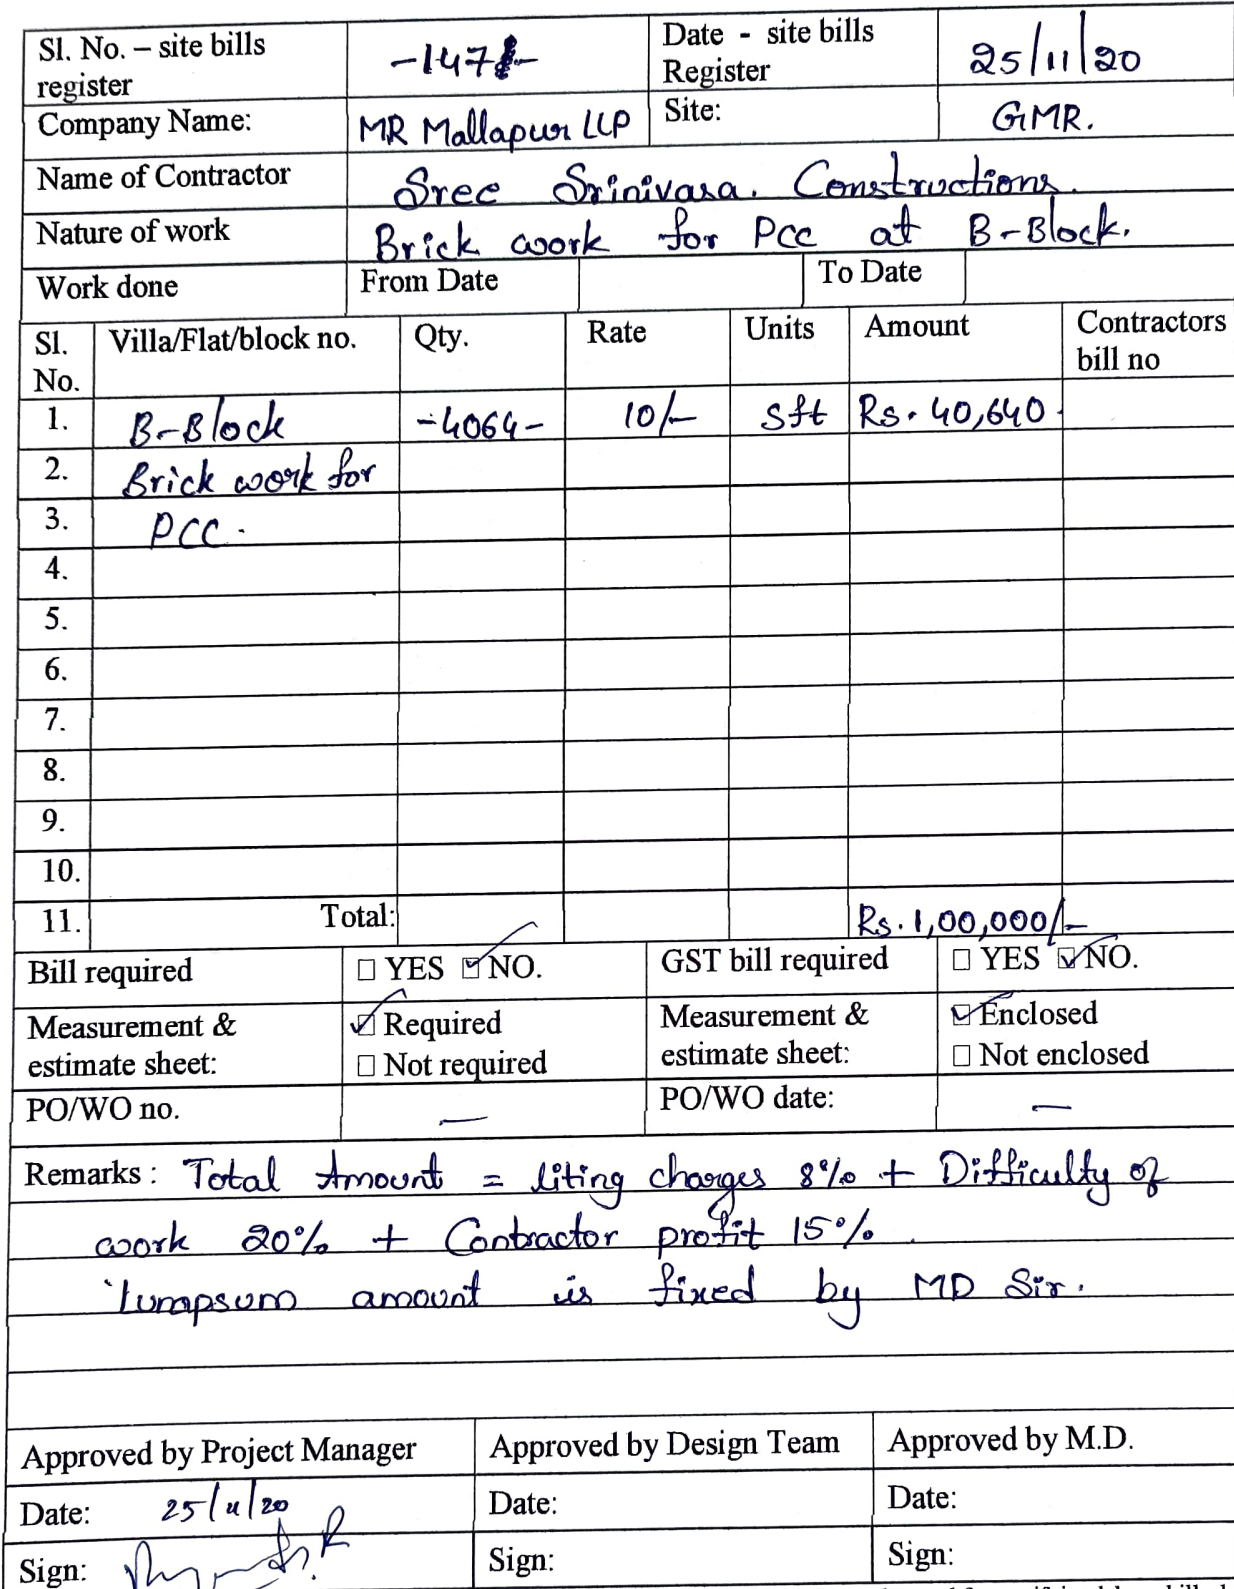 Sl. No. – site bills register -147 Date - site bills Register 25/11/20
Company Name: MR Mallapur LLP Site: GMR.
Name of Contractor Sree Srinivasa. Constructions.
Nature of work Brick work for PCC at B-Block.
Work done From Date To Date
Sl. No. Villa/Flat/block no. Qty. Rate Units Amount Contractors bill no
1. B-Block -4064- 10/- Sft Rs. 40,640
2. Brick work for
3. PCC.
4.
5.
6.
7.
8.
9.
10.
11. Total: Rs. 1,00,000/-
Bill required ☐ YES ☑ NO. GST bill required ☐ YES ☑ NO.
Measurement & estimate sheet: ☑ Required ☐ Not required Measurement & estimate sheet: ☑ Enclosed ☐ Not enclosed
PO/WO no. — PO/WO date: —
Remarks : Total Amount = liting charges 8% + Difficulty of
work 20% + Contractor profit 15%.
lumpsum amount is fixed by MD Sir.
Approved by Project Manager Approved by Design Team Approved by M.D.
Date: 25/11/20 Date: Date:
Sign: Sign: Sign: